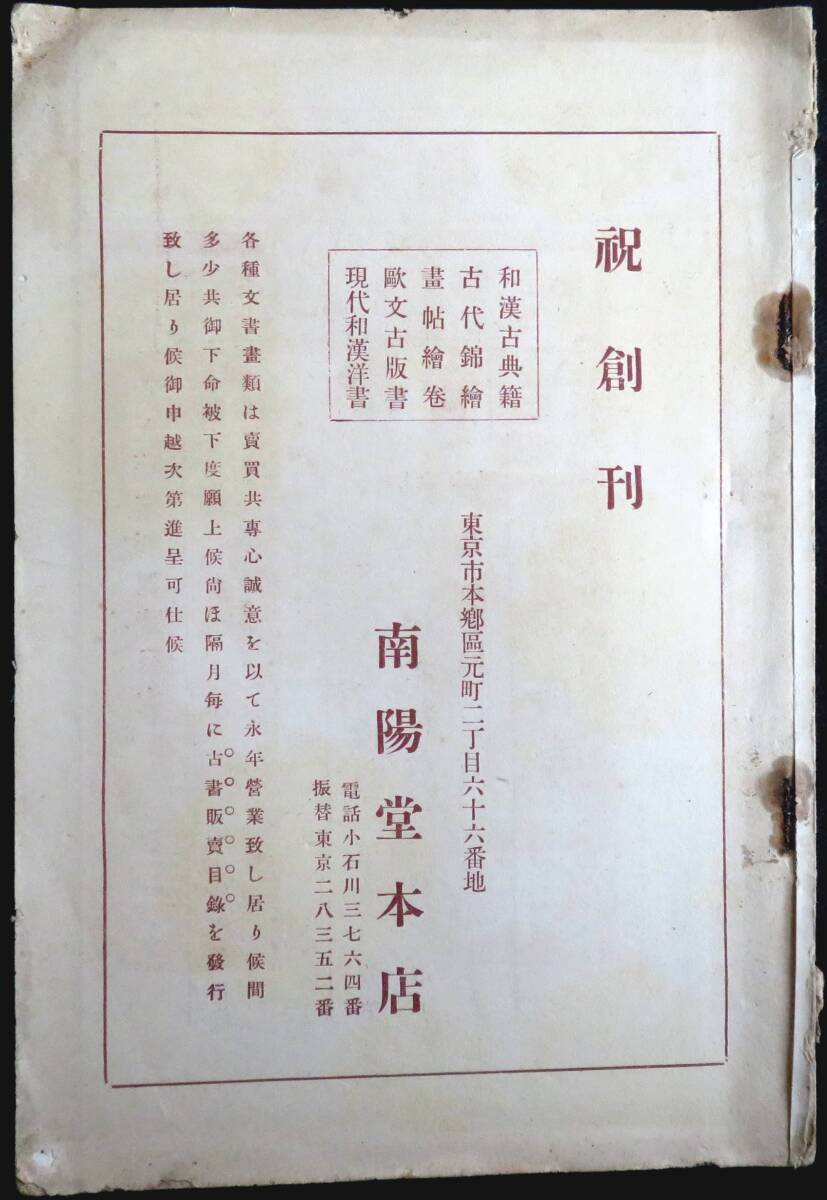 祝創刊
和漢古典籍
古代錦繪
畫帖繪卷
歐文古版書
現代和漢洋書
東京市本鄕區元町二丁目六十六番地
南陽堂本店
電話小石川三七六四番
振替東京二八三五二番
各種文書畫類は賣買共專心誠意を以て永年營業致し居り候間
多少共御下命被下度願上候尙ほ隔月每に古書販賣目錄を發行
致し居り候御申越次第進呈可仕候